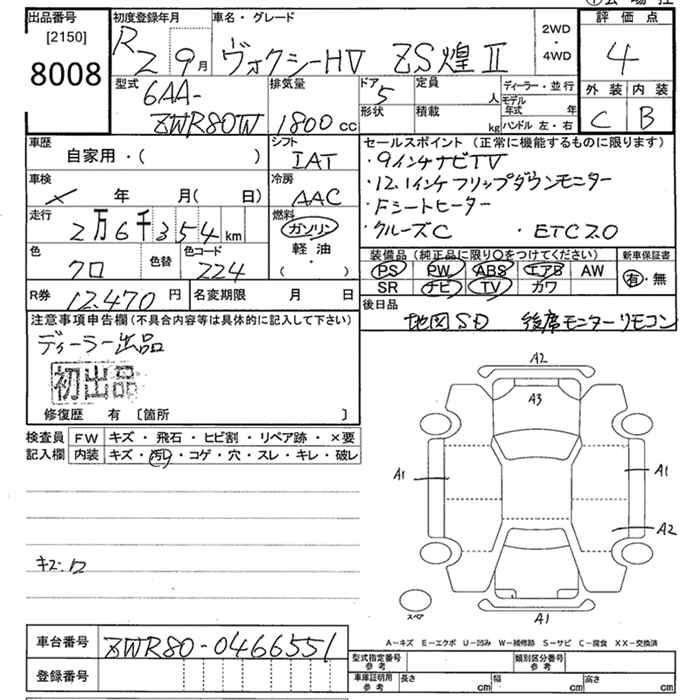 出品番号
[2150]
8008
初度登録年月
R2 9月
車名・グレード
ヴォクシーHV ZS煌II
2WD
・
4WD
評価点
4
外装 内装
C B
型式
6AA-
ZWR80W
排気量
1800cc
ドア
5
形状
定員
人
積載
kg
ディーラー・並行
モデル年式 年
ハンドル 左・右
車歴
自家用・( )
シフト
IAT
車検
× 年 月( 日)
冷房
AAC
走行
2万6千354km
燃料
ガソリン
軽油
・( )
色
クロ
色替
色コード
224
R券
12,470円
名変期限 月 日
セールスポイント(正常に機能するものに限ります)
・9インチナビTV
・12.1インチフリップダウンモニター
・Fシートヒーター
・クルーズC ・ETC2.0
装備品(純正品に限り○をつけてください)
新車保証書
PS PW ABS エアB AW
SR ナビ TV カワ
有・無
後日品
地図SD 後席モニターリモコン
注意事項申告欄(不具合内容等は具体的に記入して下さい)
ディーラー出品
初出品
修復歴 有 [箇所 ]
検査員 FW キズ・飛石・ヒビ割・リペア跡・×要
記入欄 内装 キズ・汚レ・コゲ・穴・スレ・キレ・破レ
キズ.ワ
A2
A3
A1
A1
A2
A1
スペア
A−キズ E−エクボ U−凹み W−補修跡 S−サビ C−腐食 XX−交換済
車台番号
ZWR80-0466551
登録番号
型式指定番号
参考
類別区分番号
参考
車庫証明用
参考
長さ cm 幅 cm 高さ cm